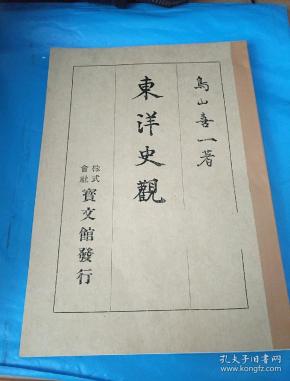 鳥山喜一著
東洋史觀
株式會社
寳文館發行
孔夫子旧书网
kongfz.com